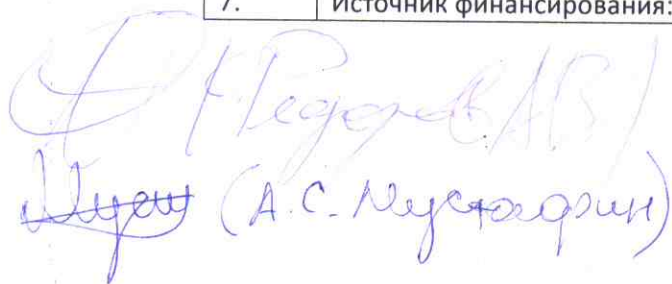 7. Источник финансирования:
(Федоров А.В.)
(А.С. Мустафин)